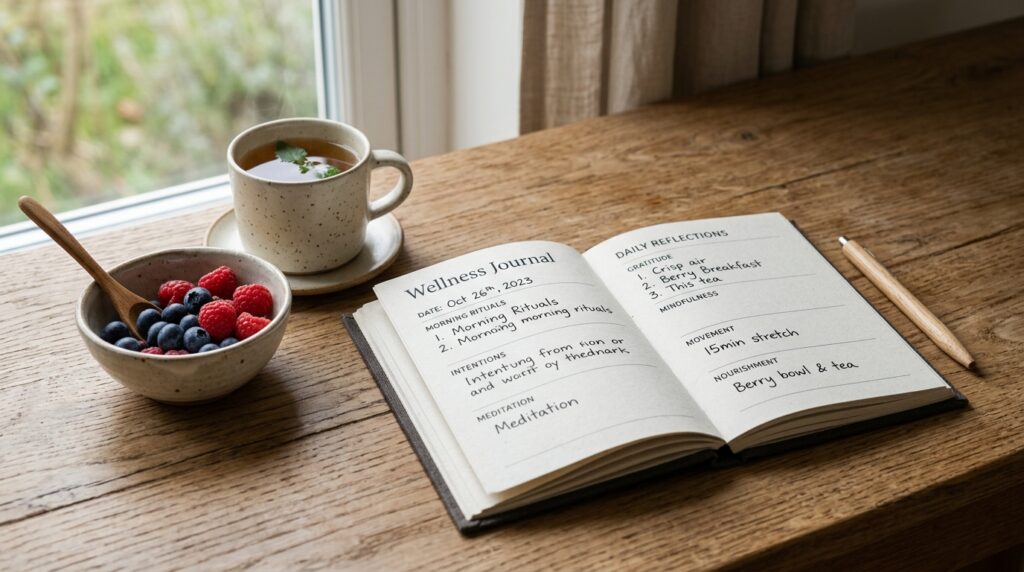 Wellness Journal
DATE: Oct 26th, 2023
MORNING RITUALS
1. Morning Rituals
2. Morноing morning rituals
INTENTIONS
Intentung from sıan or
and worır oy thednark
MEDITATION
Meditation
DAILY REFLECTIONS
GRATITUDE
1. Crisp air
2. Berry Breakfast
3. This tea
MINDFULNESS
MOVEMENT
15min stretch
NOURISHMENT
Berry bowl & tea